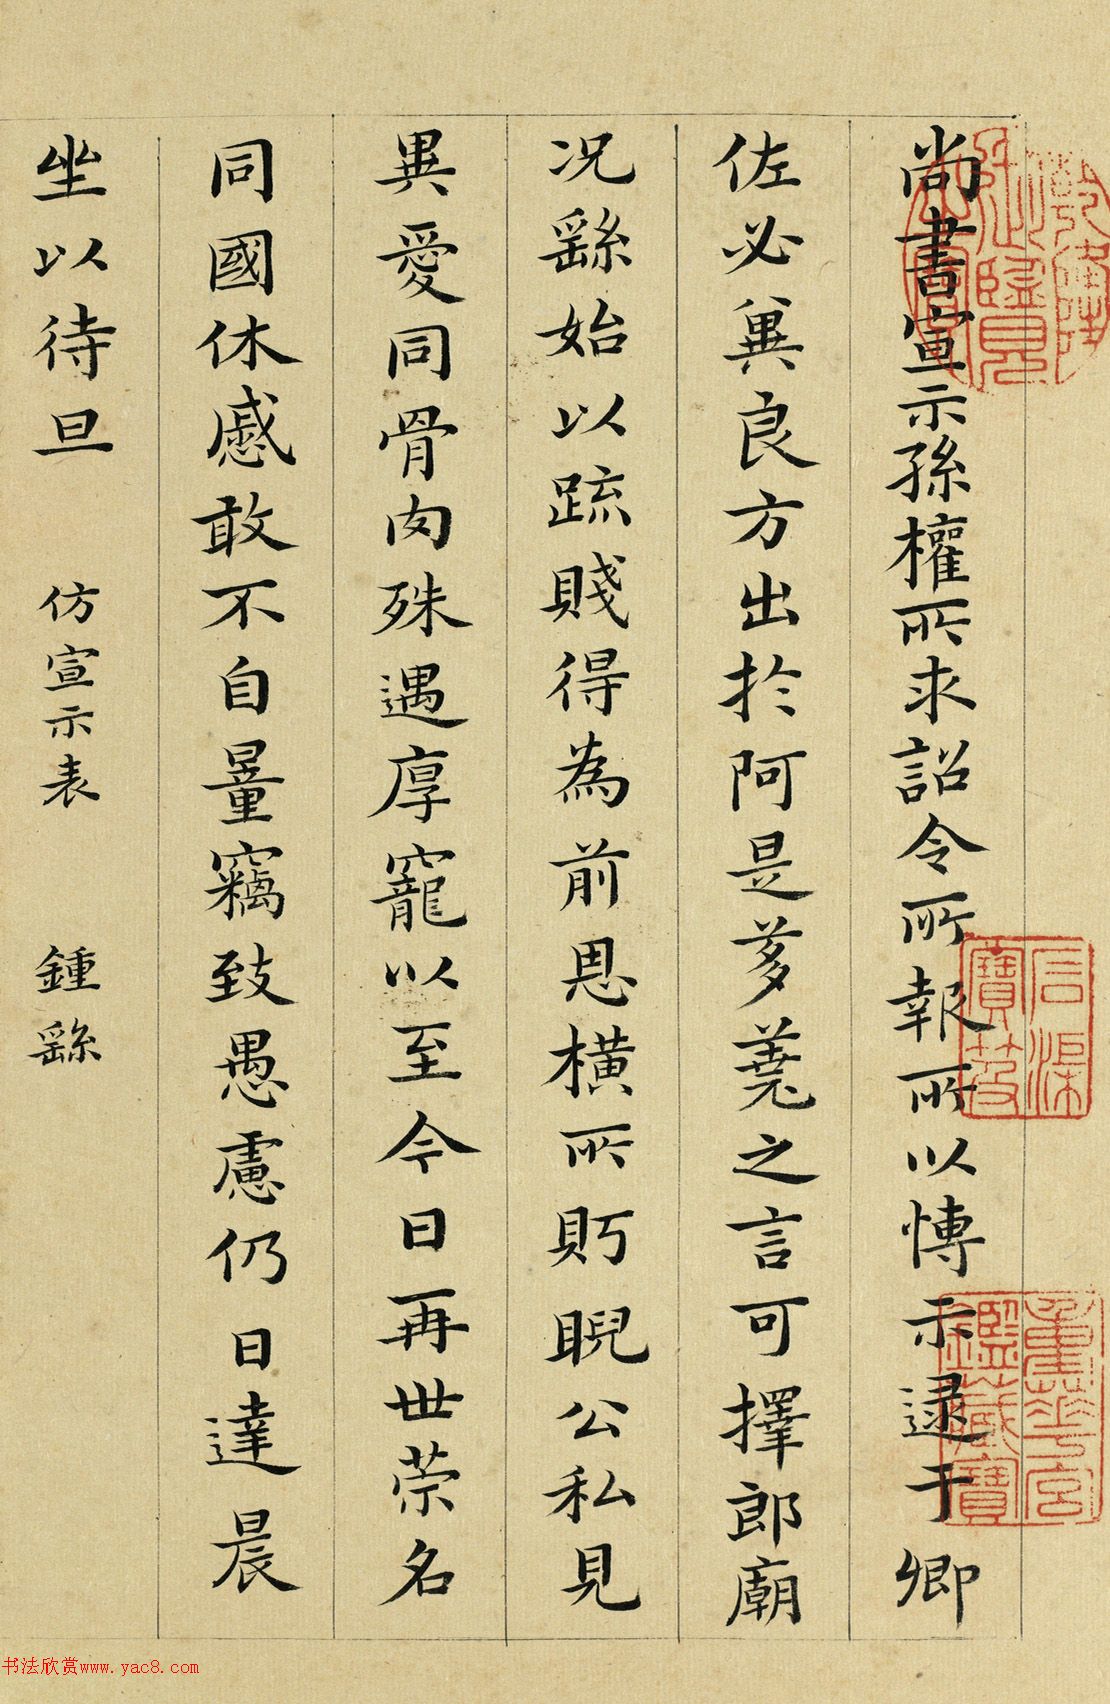 尚書宣示孫權所求詔令所報所以慱示逮于卿
佐必冀良方出於阿是芻蕘之言可擇郎廟
况繇始以疏賤得為前恩橫所眄睨公私見
異愛同骨肉殊遇厚寵以至今日再世荣名
同國休慼敢不自量竊致愚慮仍日達晨
坐以待旦 仿宣示表 鍾繇
乾隆御覽之寶
石渠寶笈
重華宮鑑藏寶
书法欣赏www.yac8.com